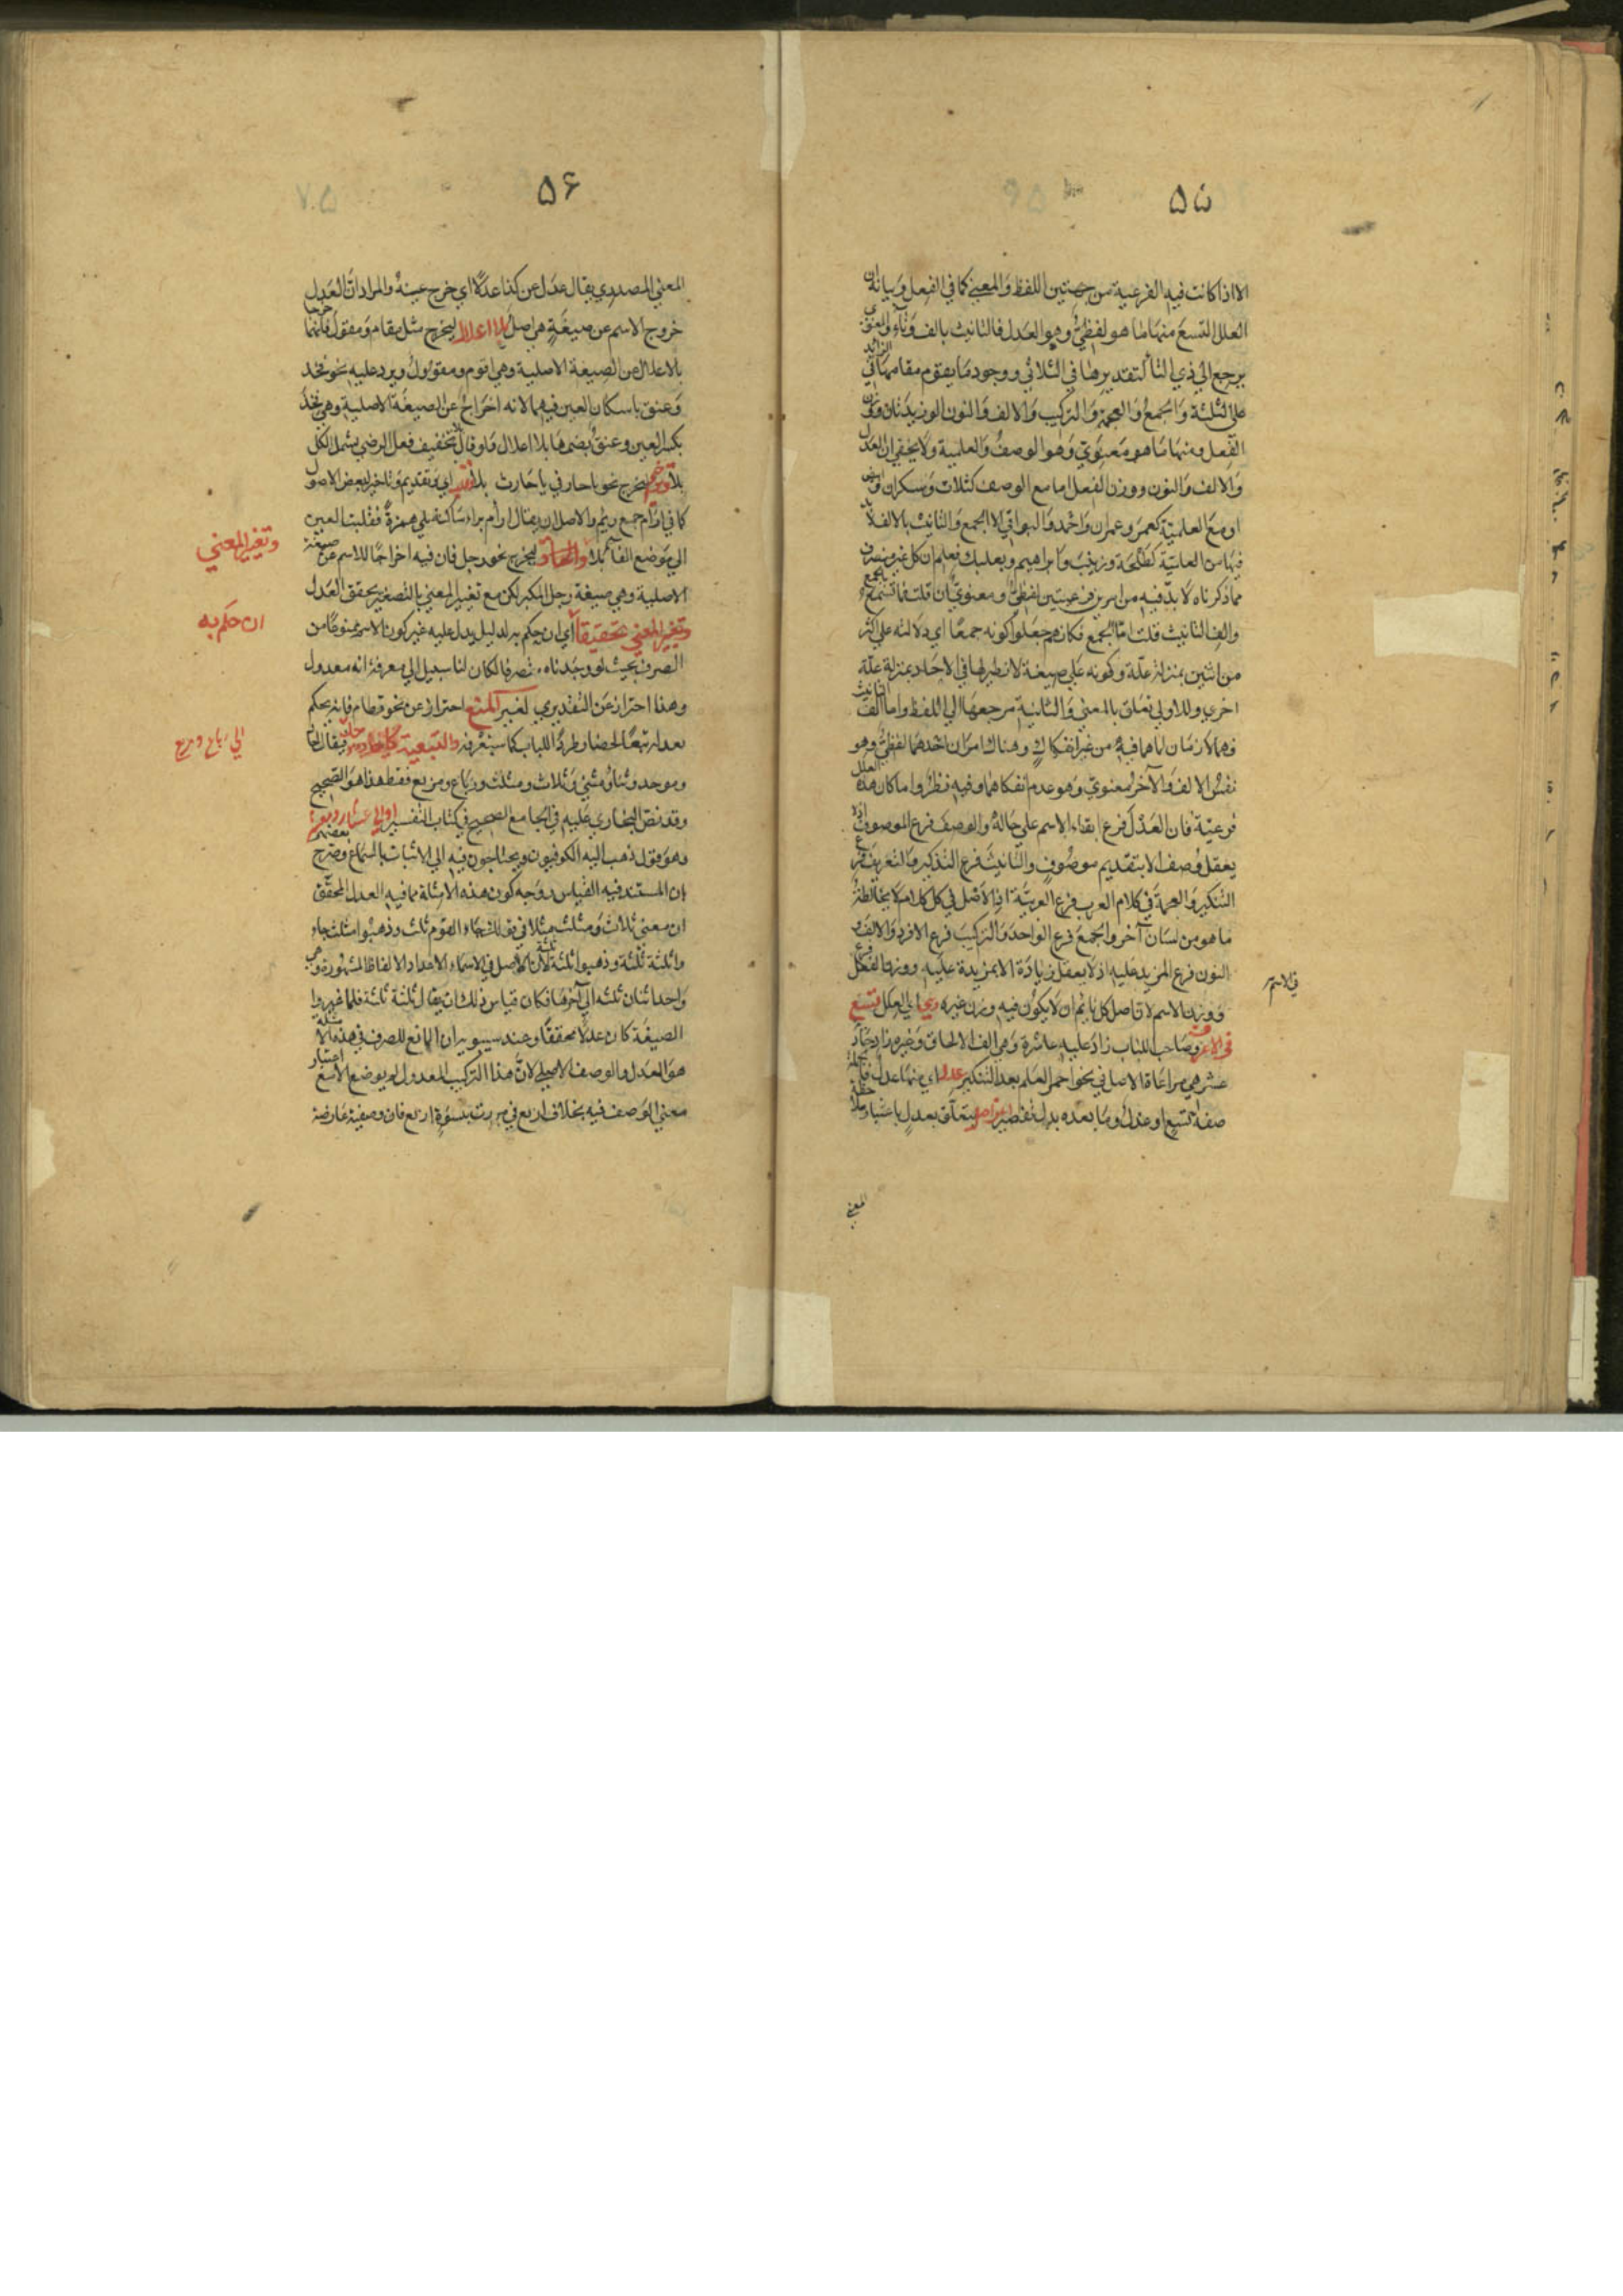 ۵۵
الا اذا كانت فيه الفرعية من جهتين اللفظ والمعني كما في الفعل وبيانه ان
العلل التسع منها ما هو لفظي وهو العدل فالتانيث بالف وتاء والمعنوي
يرجع الي ذي التاء لتقديرها في الثلاثي ووجود ما يقوم مقامها في الزائد
علي الثلثة والجمع والعجمة والتركيب والالف والنون المزيدتان ووزن
الفعل ومنها ما هو معنوي وهو الوصف والعلمية ولا يخفي ان العدل
والالف والنون ووزن الفعل اما مع الوصف كثلاث وسكران و
او مع العلمية كعمر وعمران واحمد والبواقي الا الجمع والتانيث بالالف لا بد
فيها من العلمية كطلحة وزينب وابراهيم وبعلبك فعلم ان كل غير منصرف
مما ذكرناه لا بد فيه من امرين فرعيتين لفظي ومعنوي فان قلت فما تصنع بالجمع
والف التانيث قلت اما الجمع فكانهم جعلوا كونه جمعا اي دلالته علي اكثر
من اثنين بمنزلة علة وكونه علي صيغة لا نظير لها في الاحاد بمنزلة علة
اخري وللاولي تعلق بالمعني والثانية مرجعها الي اللفظ واما الف التانيث
فهما لازمان لما هما فيه من غير انفكاك وهناك امران احدهما لفظي وهو
نفس الالف والآخر معنوي وهو عدم انفكاهما وفيه نظر واما كان هذه العلل
فرعية فان العدل فرع ابقاء الاسم علي حاله والوصف فرع الموصوف اذ لا
يعقل وصف الا بتقديم موصوف والتانيث فرع التذكير والتعريف فرع
التنكير والعجمة في كلام العرب فرع العربية اذ الاصل في كل كلام لا يخالطه
ما هو من لسان آخر والجمع فرع الواحد والتركيب فرع الافراد والالف و
النون فرع المزيد عليه اذ لا يعقل زيادة الا بمزيدة عليه ووزن الفعل فرع
ووزن الاسم لاتاصل كل نايم ان لا يكون فيه وزن غيره وهي اي العلل تسع
في الاعرف وصاحب اللباب زاد عليه عاشرة وهي الف الالحاق وغيره زاد حادية
عشر هي مراعاة الاصل في نحو احمر العلم بعد التنكير عدل اي منها عدل فالجملة
صفة لتسع او عدل وما بعده بدل تفصيل من اصل يتعلق بعدل باعتبار ملاحظة
في الاسم
المعني
۵۶
المعني المصدري يقال عدل عن كذا عدلا اي خرج عينه والمراد ان العدل
خروج الاسم عن صيغة هي اصل بلا اعلال ليخرج مثل مقام ومقول فانهما خرجا
بالاعلال عن الصيغة الاصلية وهي اقوم ومقوول ويرد عليه نحو فخذ
وعنق باسكان العين فيهما لانه اخراج عن الصيغة الاصلية وهي فخذ
بكسر العين وعنق بضمها بلا اعلال ولو قال بلا تخفيف فعل الرضي يشمل الكل
بلا ترخيم ليخرج نحو يا حار في يا حارث بلا قلب اي وتقديم وتاخير لبعض الاصول
كما في آرام جمع ريم والاصل ان يقال ارآم براء ساكنة يلي همزة فقلبت العين
الي موضع الفاء بلا والحاق ليخرج نحو رجل فان فيه اخراجا للاسم عن صيغته
الاصلية وهي صيغة رجل المكبر لكن مع تغيير المعني بالتصغير يحقق العدل
وتغيير المعني تحقيقا اي ان حكم به لدليل يدل عليه غير كون الاسم ممنوعا من
الصرف بحيث لو وجدناه منصرفا لكان لنا سبيل الي معرفة انه معدول
وهذا احتراز عن التقديري لغير المنع احتراز عن نحو قطام فانه يحكم
بعدله تبعا لحضار وطردا للباب كما ستعرفه والتبعية كاحاد وموحد فيقال احاد
وموحد وثناء ومثني وثلاث ومثلث ورباع ومربع فقط هذا هو الصحيح
وقد نص البخاري عليه في الجامع الصحيح في كتاب التفسير او الي عشار ومعشر
وهو قول ذهب اليه الكوفيون ويحتاجون فيه الي الاثبات بالسماع وصرح بعضهم
بان المستند فيه القياس ووجه كون هذه الامثلة مما فيه العدل المحقق
ان معني ثلاث ومثلث مثلا في قولك جاء القوم ثلث وذهبوا مثلث جاء
وا ثلثة ثلثة وذهبوا ثلثة ثلثة لان الاصل في الاسماء الاعداد الالفاظ المشهورة وهي
واحد اثنان ثلثة الي آخرها فكان قياس ذلك ان يقال ثلثة ثلثة فلما غيروا
الصيغة كان عدلا محققا وعند سيبويه ان المانع للصرف في هذه الامثلة
هو العدل والوصف الاصلي لان هذا التركيب المعدول لم يوضع الا مع اعتبار
معني الوصف فيه بخلاف اربع في مررت بنسوة اربع فان وصفية عارضة
وتغيير المعني
ان حكم به
الي رباع ومربع